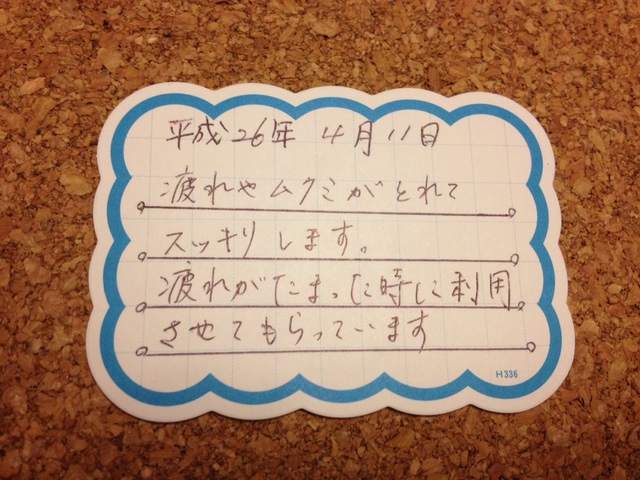 平成26年 4月11日
疲れやムクミがとれて
スッキリします。
疲れがたまった時に利用
させてもらっています
H336